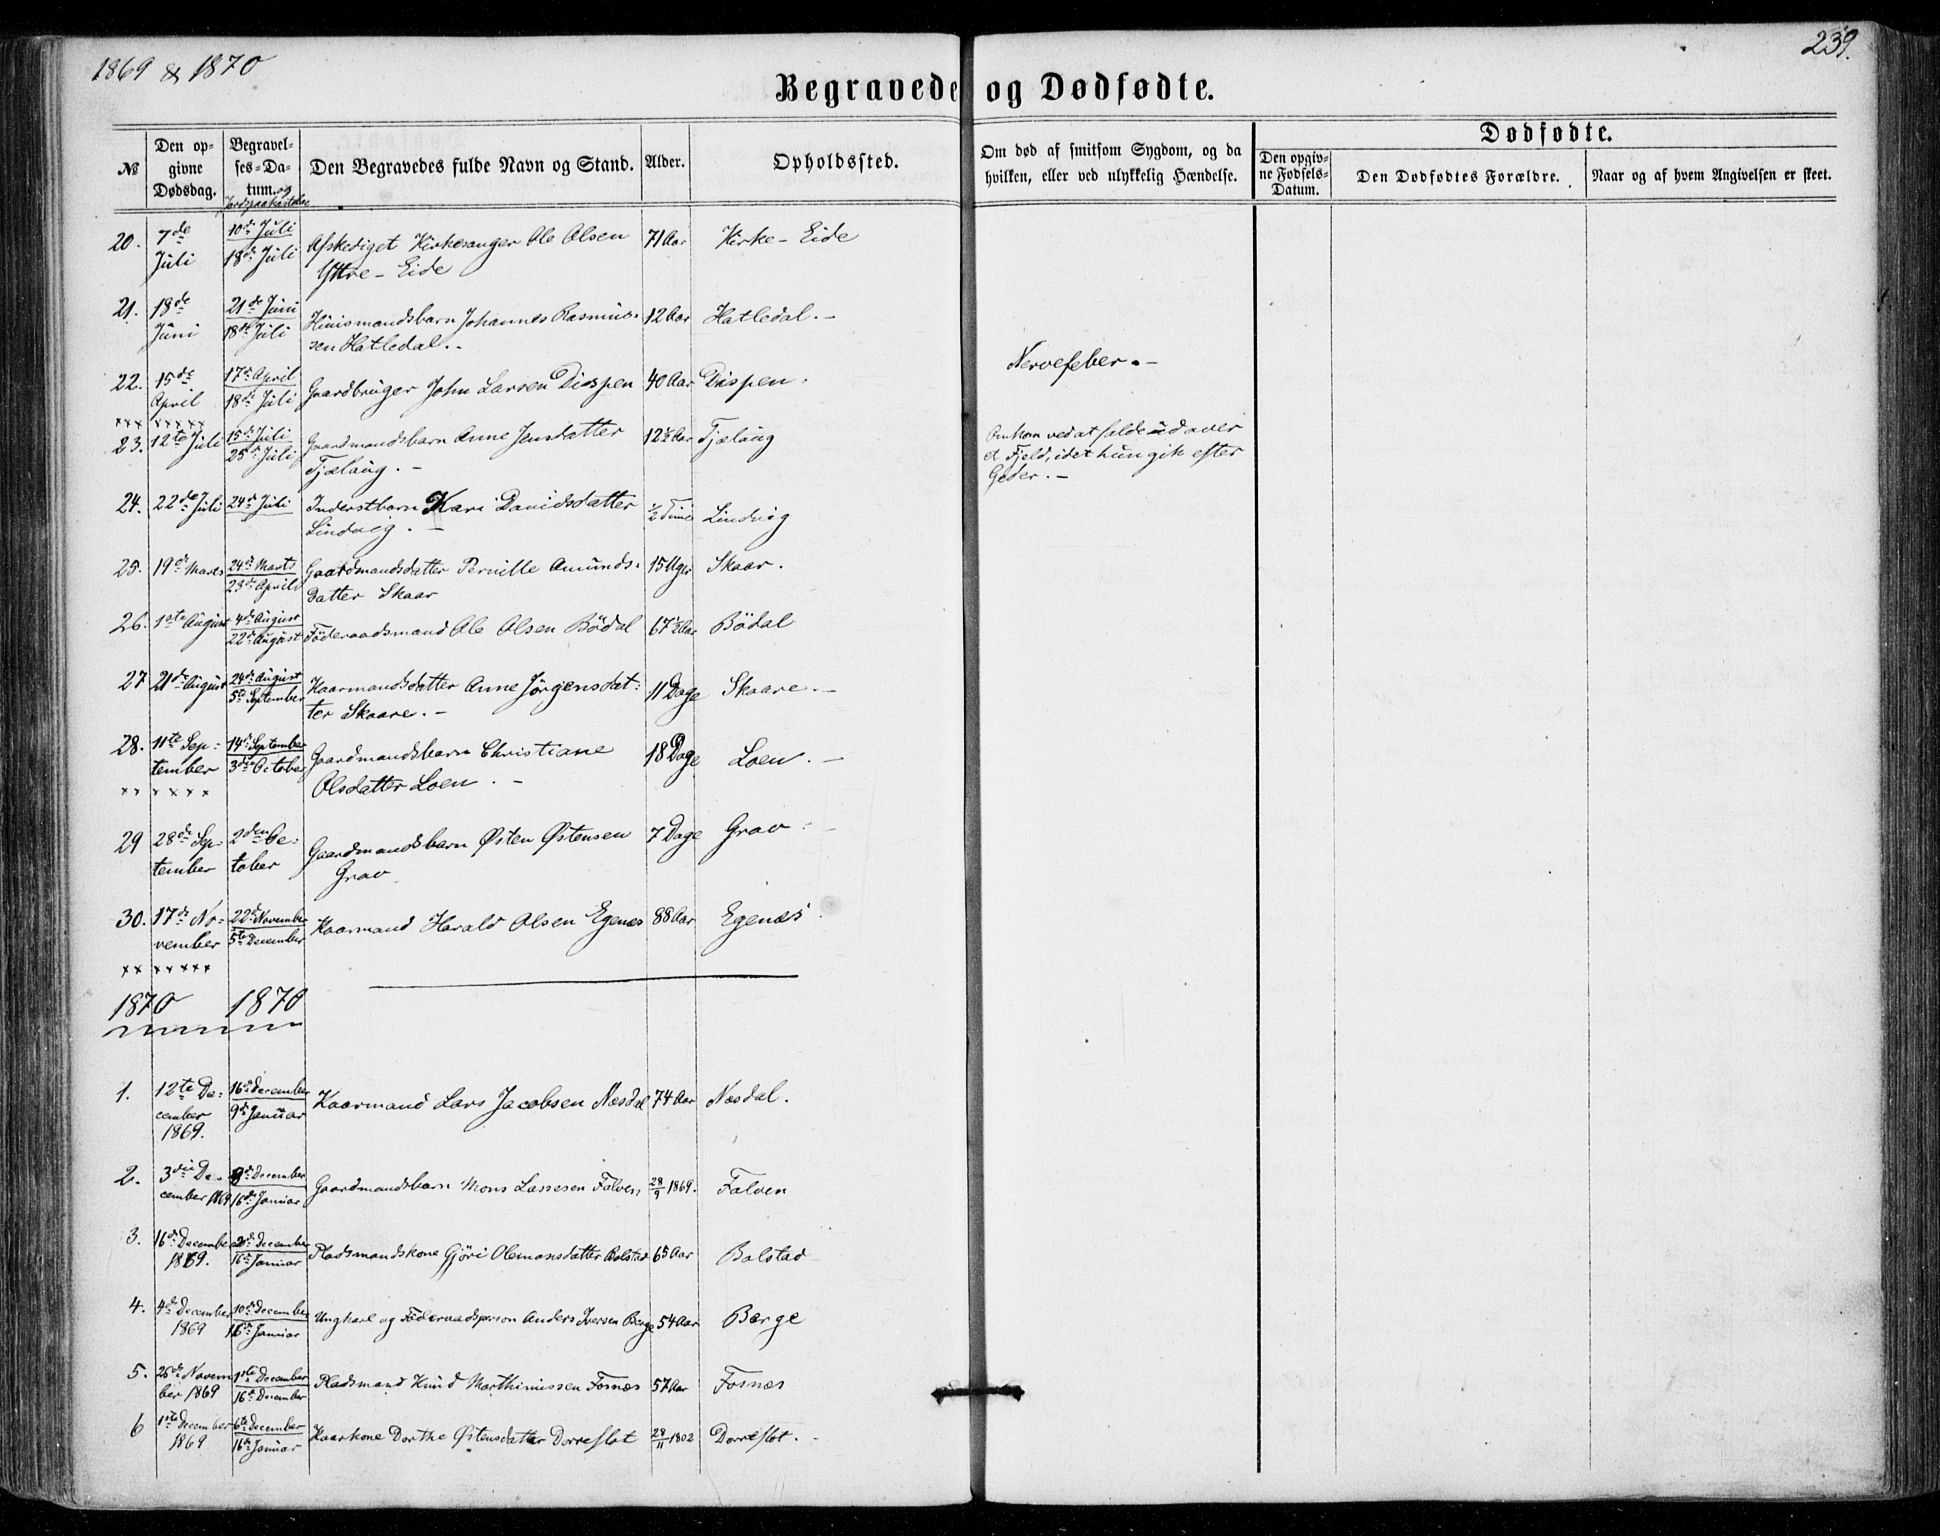 1869 & 1870
239.
Begravede og Dødfødte.
№
Den op-
givne
Dødsdag.
Begravel-
ses-Da-
tum. og
Jordpaakastelse
Den Begravedes fulde Navn og Stand.
Alder.
Opholdssted.
Om død af smitsom Sygdom, og da
hvilken, eller ved ulykkelig Hændelse.
Dødfødte.
Den opgiv-
ne Fødsels-
Datum.
Den Dødfødtes Forældre.
Naar og af hvem Angivelsen er skeet.
20. 7de Juli 10de Juli 18de Juli Afskediget Kirkesanger Ole Olsen 71 Aar Kirke-Eide
Yttre-Eide
21. 18de Juni 21de Juni 18de Juli Huusmandsbarn Johannes Rasmus- 12 Aar Hatledal.-
sen Hatledal.-
22. 15de April 17de April 18de Juli Gaardbruger John Larsen Dispen 40 Aar Dispen. Nervefeber.-
xxx xxxxx
23. 12te Juli 15de Juli 25de Juli Gaardmandsbarn Anne Jensdatter 12½ Aar Tjælaug
Tjælaug.-
Omkom ved at falde ud over
et Fjeld, idet hun gik efter
Geder.-
24. 22de Juli 24de Juli Inderstbarn Kari Davidsdatter ½ Time Lindvig
Lindvig.-
25. 19de Marts 24de Marts 23de April Gaardmandsdatter Pernille Amunds- 15 Uger Skaar.
datter Skaar
26. 1ste August 4de August 22de August Föderaadsmand Ole Olsen Bödal 67½ Aar Bödal
27 21de August 24de August 5te September Kaarmandsdatter Anne Jørgensdat- 11 Dage Skaare.-
ter Skaare.-
28. 11te Sep- tember 14de September 3die October Gaardmandsbarn Christiane 18 Dage Loen.-
Olsdatter Loen.-
xx xxxxx
29 28de Sep- tember 2den Oc- tober Gaardmandsbarn Østen Østensen 7 Dage Grav.-
Grav
30. 17de No- vember 22de November 5te December Kaarmand Harald Olsen Egenes 88 Aar Egenæs
xx xxxxxx
1870 1870
1. 12te De- cember 1869. 16de December 9de Januar Kaarmand Lars Jacobsen Næsdal 74 Aar Næsdal.
2. 3die De- cember 1869 9de December 16de Januar Gaardmandsbarn Mons Lassesen Falven 28/9 1869. Falven
3. 16de December 1869. 20de December 16de Januar Pladsmandskone Gjöri Olemonsdatter Bolstad 65 Aar Bolstad
4. 4de December 1869 10de December 16de Januar Ungkarl og Föderaadsperson Anders Iversen Berge 54 Aar Berge
5. 26de Novem- ber 1869 1ste December 16de December Pladsmand Knud Marthinussen Fosnæs 57 Aar Fosnæs
6 1ste December 1869 6te December 16de Januar Kaarkone Dorthe Østensdatter Dorreflot 28/11 1802 Dorreflot.-